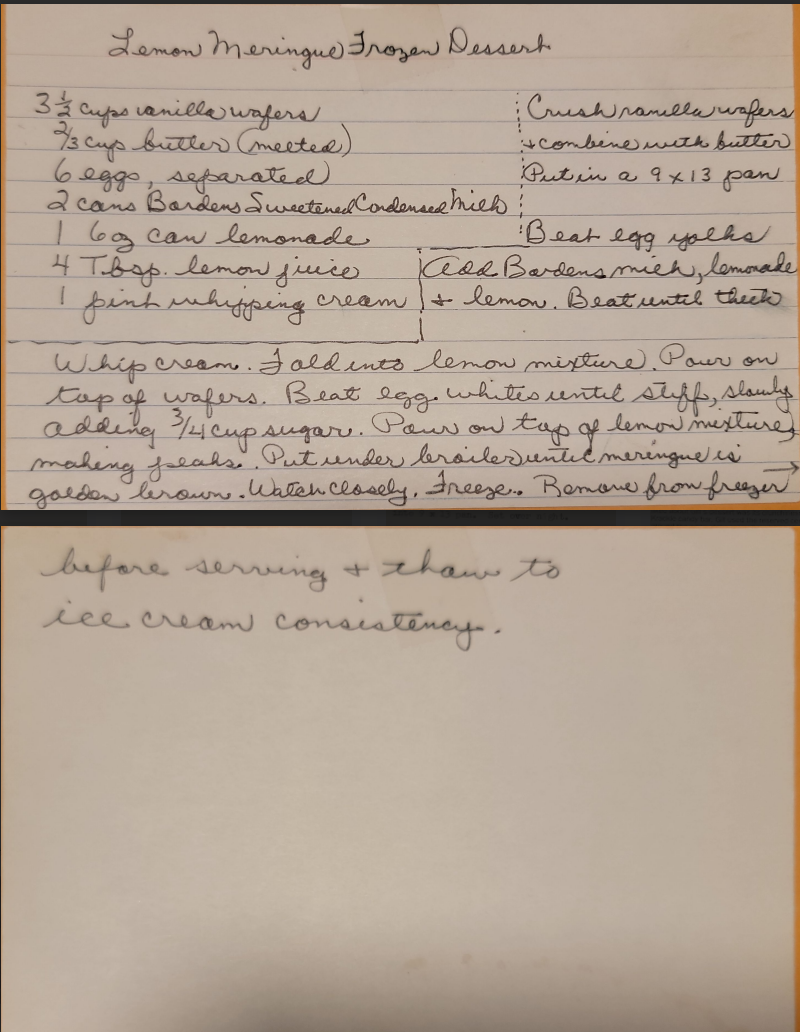 Lemon Meringue Frozen Dessert
3 1/2 cups vanilla wafers
2/3 cup butter (meeted)
6 eggs, separated
2 cans Bordens Sweetened Condensed Milk
1 6oz can lemonade
4 Tbsp. lemon juice
1 pint whipping cream
Crush vanilla wafers
+ combine with butter
Put in a 9 x 13 pan
Beat egg yolks
Add Bordens milk, lemonade
+ lemon. Beat until thick
Whip cream. Fold into lemon mixture. Pour on
top of wafers. Beat egg whites until stiff, slowly
adding 3/4 cup sugar. Pour on top of lemon mixture,
making peaks. Put under broiler until meringue is
golden brown. Watch closely. Freeze. Remove from freezer →
before serving + thaw to
ice cream consistency.